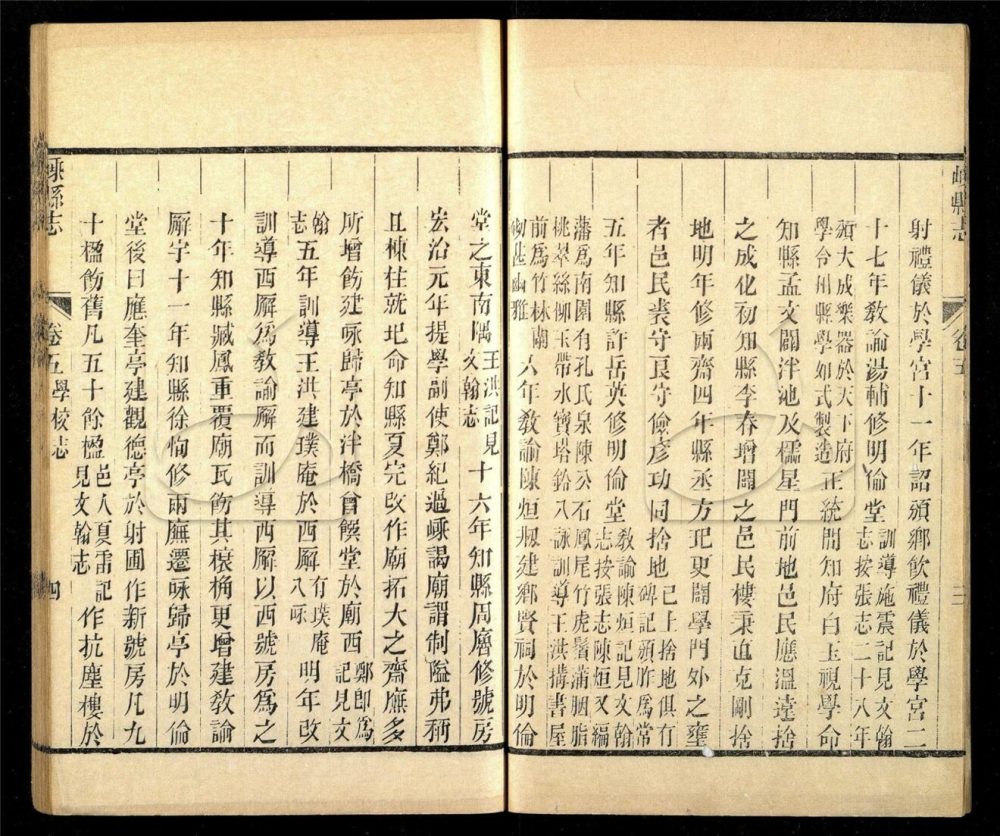 嵊縣志
卷五
三
射禮儀於學宮十一年詔頒鄉飲禮儀於學宮二
十七年教諭湯輔修明倫堂訓導施震記見文翰
志按張志二十八年
頒大成樂器於天下府
學令州縣學如式製造正統間知府白玉視學命
知縣孟文闢泮池及櫺星門前地邑民應溫遠捨
之成化初知縣李春增闢之邑民樓秉直克剛捨
地明年修兩齋四年縣丞方玘更闢學門外之壅
者邑民裘守良守儉彥功同捨地已上捨地俱有
碑記頒胙爲常
五年知縣許岳英修明倫堂教諭陳烜記見文翰
志按張志陳烜又編
藩爲南園有孔氏泉陳公石鳳尾竹虎鬚蒲胭脂
桃翠絲柳玉帶水寶塔鈴八詠訓導王洪搆書屋
前爲竹林蘭
砌甚幽雅六年教諭陳烜剏建鄉賢祠於明倫
堂之東南隅王洪記見
文翰志十六年知縣周膺修號房
宏治元年提學副使鄭紀過嵊謁廟謂制隘弗稱
且棟住就圮命知縣夏完改作廟拓大之齋廡多
所增飭建咏歸亭於泮橋曾饌堂於廟西鄭即爲
記見文
翰
志五年訓導王洪建璞庵於西廨有璞庵
八咏明年改
訓導西廨爲教諭廨而訓導西廨以西號房爲之
十年知縣臧鳳重覆廟瓦飭其榱桷更增建教諭
廨宇十一年知縣徐恂修兩廡遷咏歸亭於明倫
堂後曰應奎亭建觀德亭於射圃作新號房凡九
十楹飭舊凡五十餘楹邑人夏雷記
見文翰志作抗塵樓於
嵊縣志
卷五學校志
四